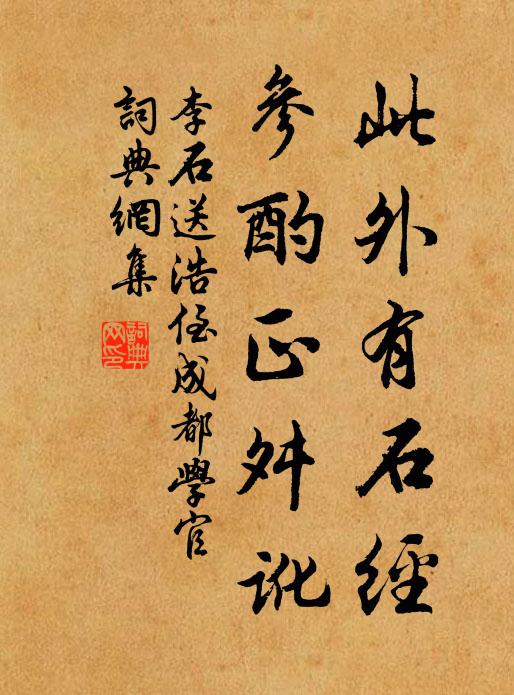 此外有石經
參酌正舛訛
李石送浩侄成都學官
詞典網集
詞典网印